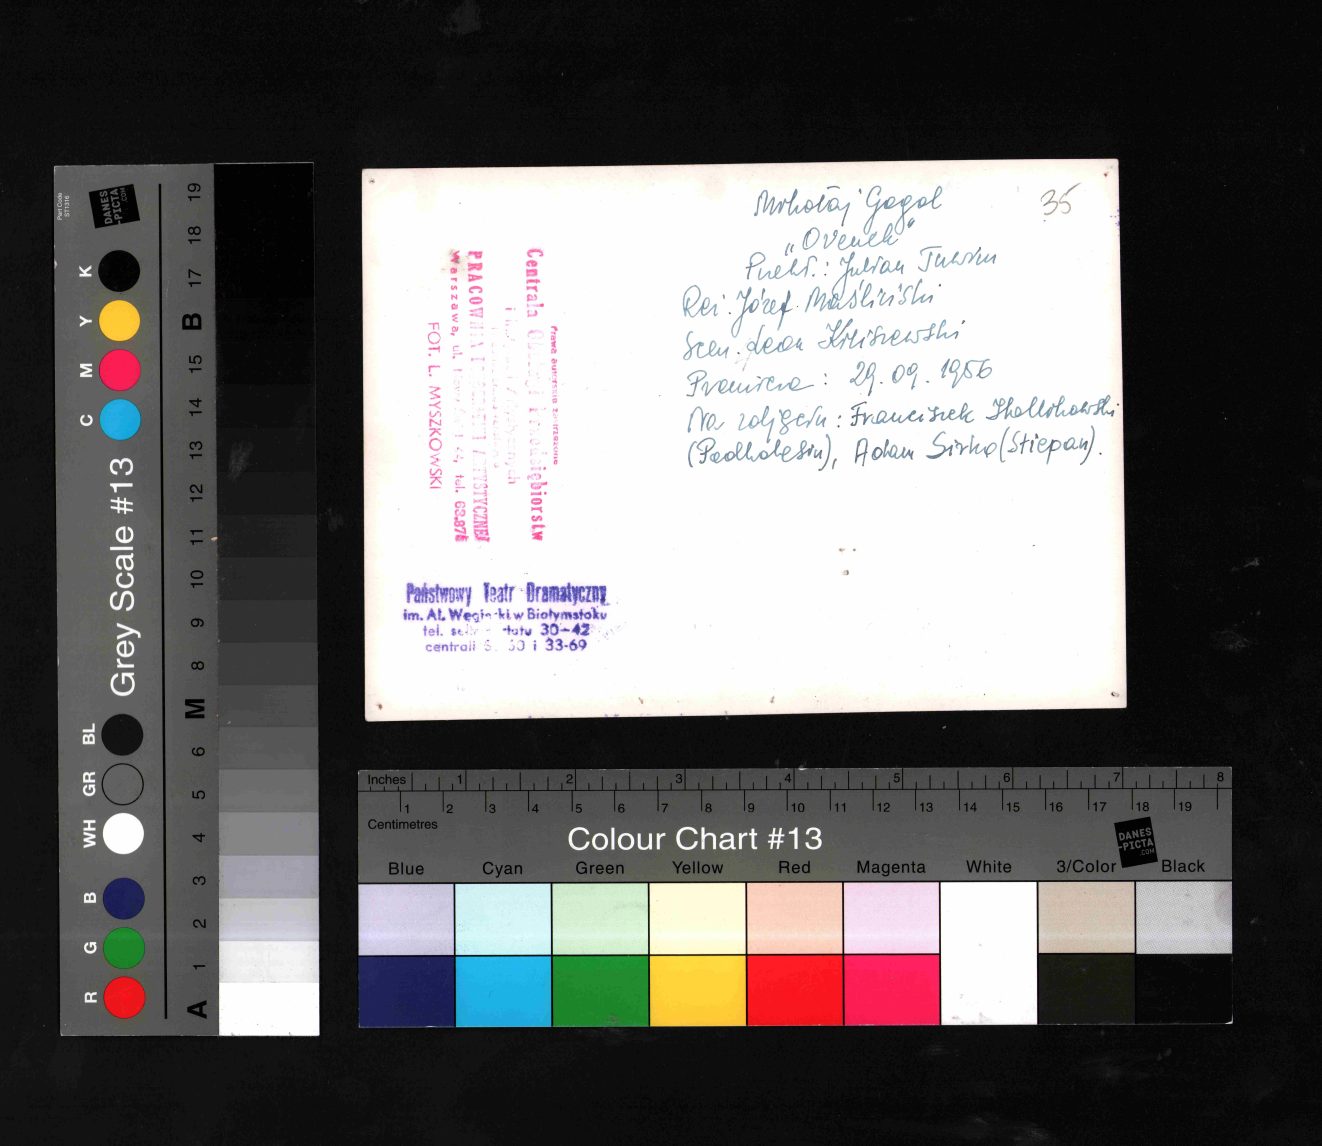 Mikołaj Gogol
35
„Ożenek”
Przekł.: Julian Tuwim
Reż. Józef Maśliński
Scen. Leon
Premiera: 29.09.1956
Na zdjęciu: Franciszek
(Podkolesin), Adam Sirko (Stiepan).
Prawa autorskie zastrzeżone
Centrala
PRACOWNIA
Warszawa, ul. tel.
FOT. L. MYSZKOWSKI
Państwowy Teatr Dramatyczny
im. Al. Węgierki w Białymstoku
tel. 30-42
centrali i 33-69
Part Code
ST1316
DANES
-PICTA
.COM
Grey Scale #13
R G B WH GR BL C M Y K
A 1 2 3 4 5 6 M 8 9 10 11 12 13 14 15 B 17 18 19
Inches 1 2 3 4 5 6 7 8
1 2 3 4 5 6 7 8 9 10 11 12 13 14 15 16 17 18 19
Centimetres
Colour Chart #13
DANES
-PICTA
.COM
Blue Cyan Green Yellow Red Magenta White 3/Color Black